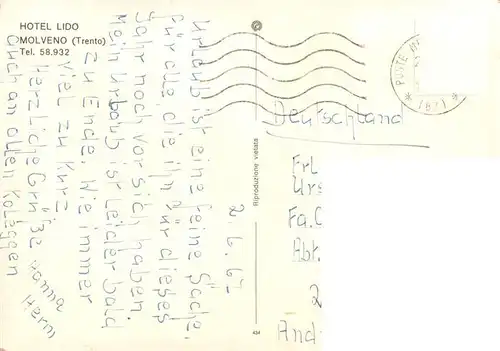 HOTEL LIDO
MOLVENO (Trento)
Tel. 58.932
2.6.67
Urlaub ist eine feine Sache,
für alle, die ihn für dieses
Jahr noch vor sich haben.
Mein Urlaub ist leider bald
zu Ende. Wie immer
viel zu kurz
Herzliche Grüße
auch an allen Kolegen
Hanna
Herm
Riproduzione vietata
434
POSTE
(871)
Deutschland
Frl
Urs
Fa.
Abt.
2
And